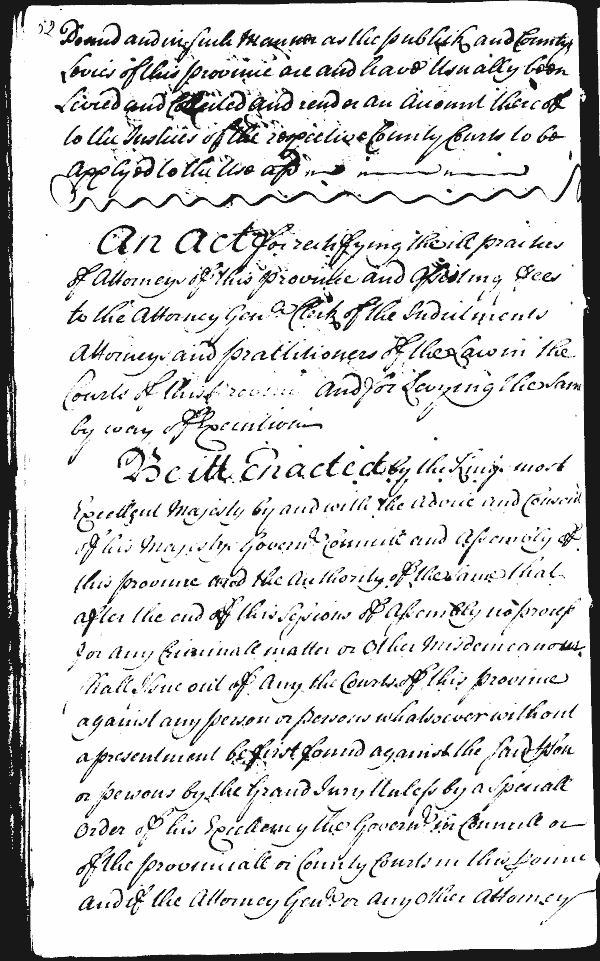 52
Pound and in such Manner as the publick and County
Levies of this province are and have Usually been
Levied and Collected and render an Account thereof
to the Justices of the respective County Courts to be
Applyed to the Use afd
An Act for rectifying the ill practices
of Attorneys of this province and Fees
to the Attorney Genr Clerk of the Indictments
Attorneys and practitioners of the Law in the
Courts of this Province And for Levying the Same
by way of Execution
Be itt Enacted by the Kings most
Excellent Majesty by and with the Advice and Consent
of his Majestys Governr Councill and Assembly of
this province and the Authority of the same that
after the end of this Sessions of Assembly no process
for any Criminall matter or Other Misdemeanour
shall Issue out of Any the Courts of this province
against any person or persons whatsoever without
a presentment be first found against the said pson
or persons by the Grand Jury Unless by a Speciall
Order of his Excellency the Governr in Councill or
of the provinciall or County Courts in this province
And if the Attorney Genr or any Other Attorney